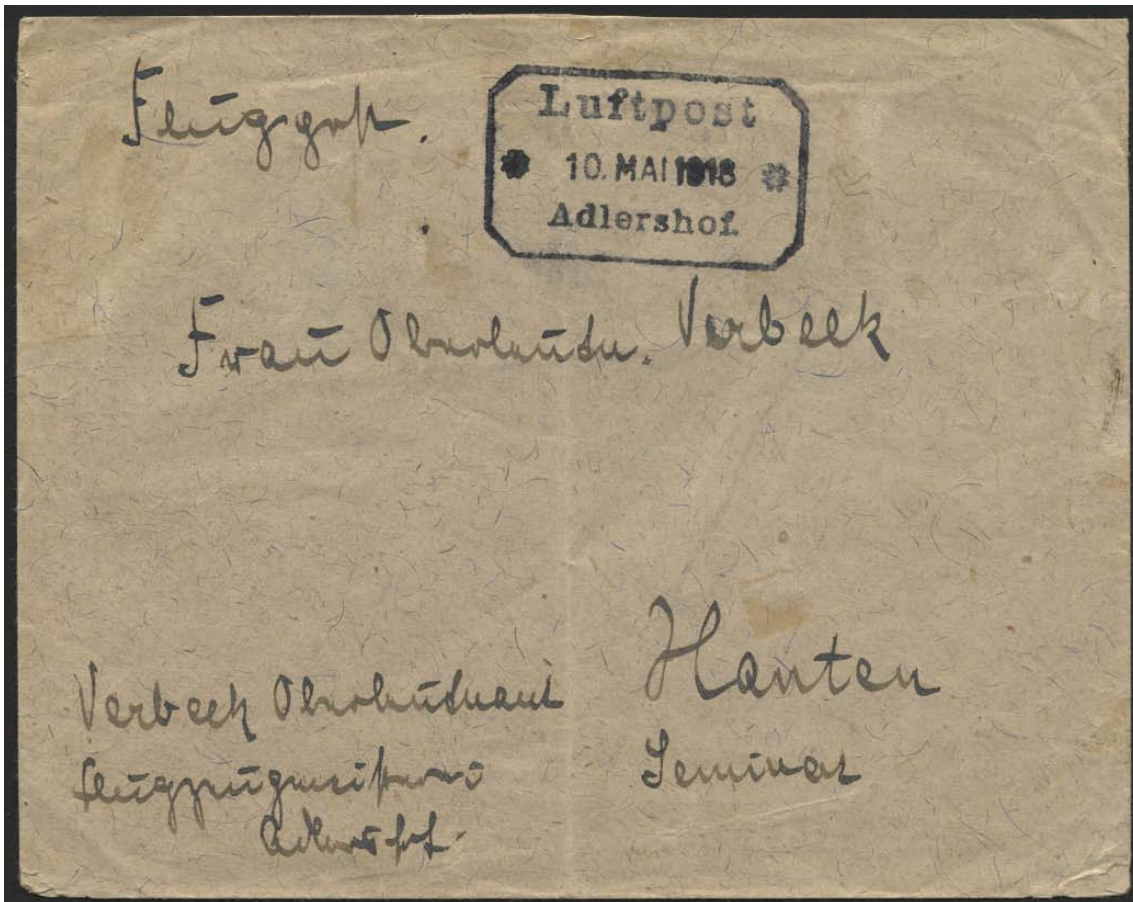 Flugpost.
Luftpost
10. MAI 1918
Adlershof.
Frau Oberleutn. Verbeek
Verbeek Oberleutnant
Flugzeugmeisterei
Adlershof.
Xanten
Seminar